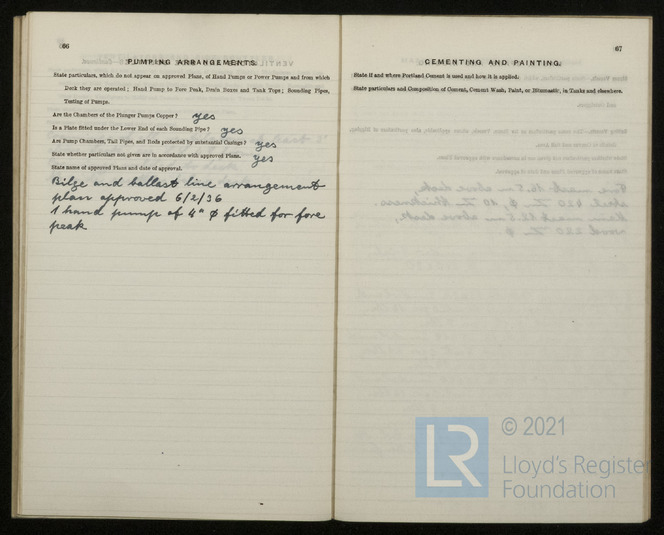 66
PUMPING ARRANGEMENTS.
State particulars, which do not appear on approved Plans, of Hand Pumps or Power Pumps and from which
Deck they are operated; Hand Pump to Fore Peak, Drain Boxes and Tank Tops; Sounding Pipes,
Testing of Pumps.
Are the Chambers of the Plunger Pumps Copper? yes
Is a Plate fitted under the Lower End of each Sounding Pipe? yes
Are Pump Chambers, Tail Pipes, and Rods protected by substantial Casings? yes
State whether particulars not given are in accordance with approved Plans. yes
State name of approved Plans and date of approval.
Bilge and ballast line arrangement
plan approved 6/2/36
1 hand pump of 4" ø fitted for fore
peak
67
CEMENTING AND PAINTING.
State if and where Portland Cement is used and how it is applied:
State particulars and Composition of Cement, Cement Wash, Paint, or Bitumastic, in Tanks and elsewhere.
LR
© 2021
Lloyd's Register
Foundation